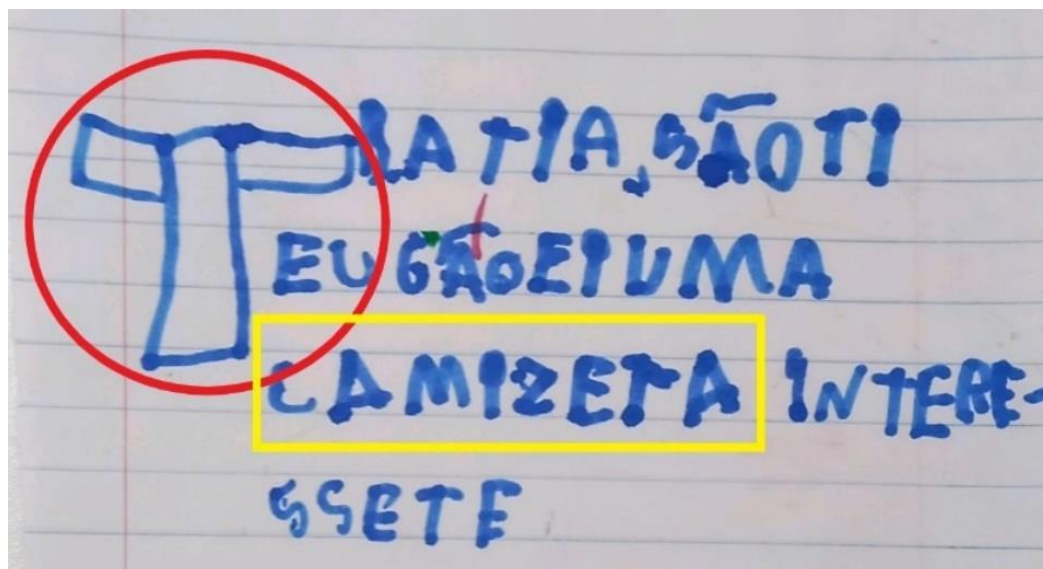 TIA TIA, SÃO TI
EU GÃOEI UMA
CAMIZETA INTERE-
SSETE